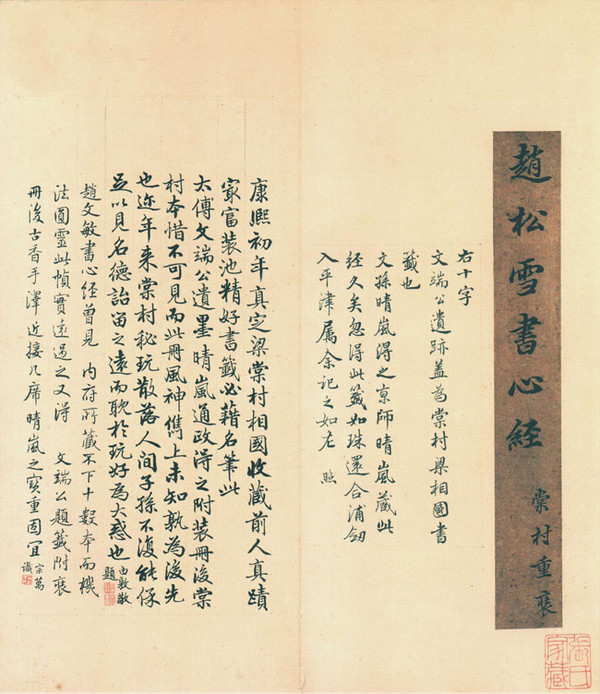 趙松雪書心経
棠村重裝
張氏家藏
右十字
文端公遺跡蓋為棠村梁相國書
籤也
文孫晴嵐得之京師晴嵐藏此
経久矣忽得此籤如珠還合浦劒
入平津属余記之如左 照
康熙初年真定梁棠村相國收藏前人真蹟
㝡富装池精好書籤必藉名筆此
太傅文端公遺墨晴嵐通政得之附装冊後棠
村本惜不可見而此冊風神儁上未知孰為後先
也迩年来棠村秘玩散落人間子孫不復能保
足以見名德詒留之遠而耽於玩好為大惑也
由敦敬
題
趙文敏書心経曽見 内府所藏不下十數本而機
法圓靈此幀實遠過之又得 文端公題籤附裝
冊後古香手澤近接几席晴嵐之寳重固宜
宗萬
識